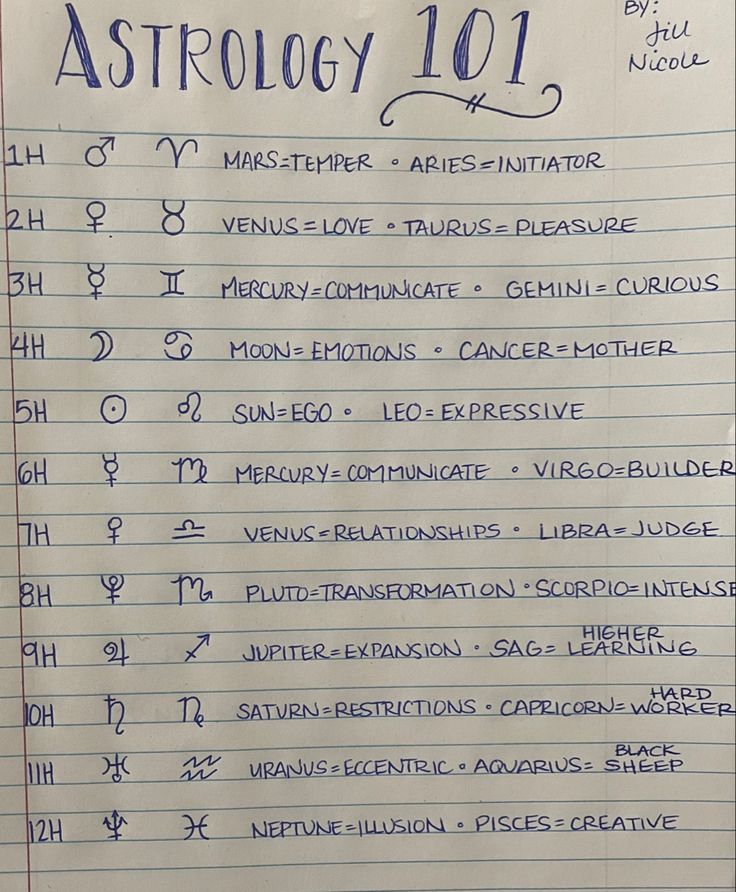 ASTROLOGY 101
BY:
Jill
Nicole
1H ♂ ♈ MARS=TEMPER • ARIES=INITIATOR
2H ♀ ♉ VENUS=LOVE • TAURUS=PLEASURE
3H ☿ ♊ MERCURY=COMMUNICATE • GEMINI=CURIOUS
4H ☽ ♋ MOON=EMOTIONS • CANCER=MOTHER
5H ☉ ♌ SUN=EGO • LEO=EXPRESSIVE
6H ☿ ♍ MERCURY=COMMUNICATE • VIRGO=BUILDER
7H ♀ ♎ VENUS=RELATIONSHIPS • LIBRA=JUDGE
8H ♇ ♏ PLUTO=TRANSFORMATION • SCORPIO=INTENSE
9H ♃ ♐ JUPITER=EXPANSION • SAG= HIGHER LEARNING
10H ♄ ♑ SATURN=RESTRICTIONS • CAPRICORN= HARD WORKER
11H ♅ ♒ URANUS=ECCENTRIC • AQUARIUS= BLACK SHEEP
12H ♆ ♓ NEPTUNE=ILLUSION • PISCES=CREATIVE